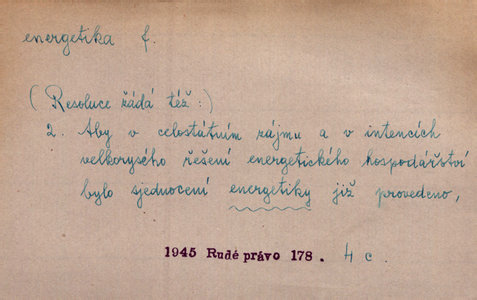 energetika f.
(Resoluce žádá též:)
2. Aby v celostátním zájmu a v intencích
velkorysého řešení energetického hospodářství
bylo sjednocení energetiky již provedeno,
1945 Rudé právo 178. 4 c